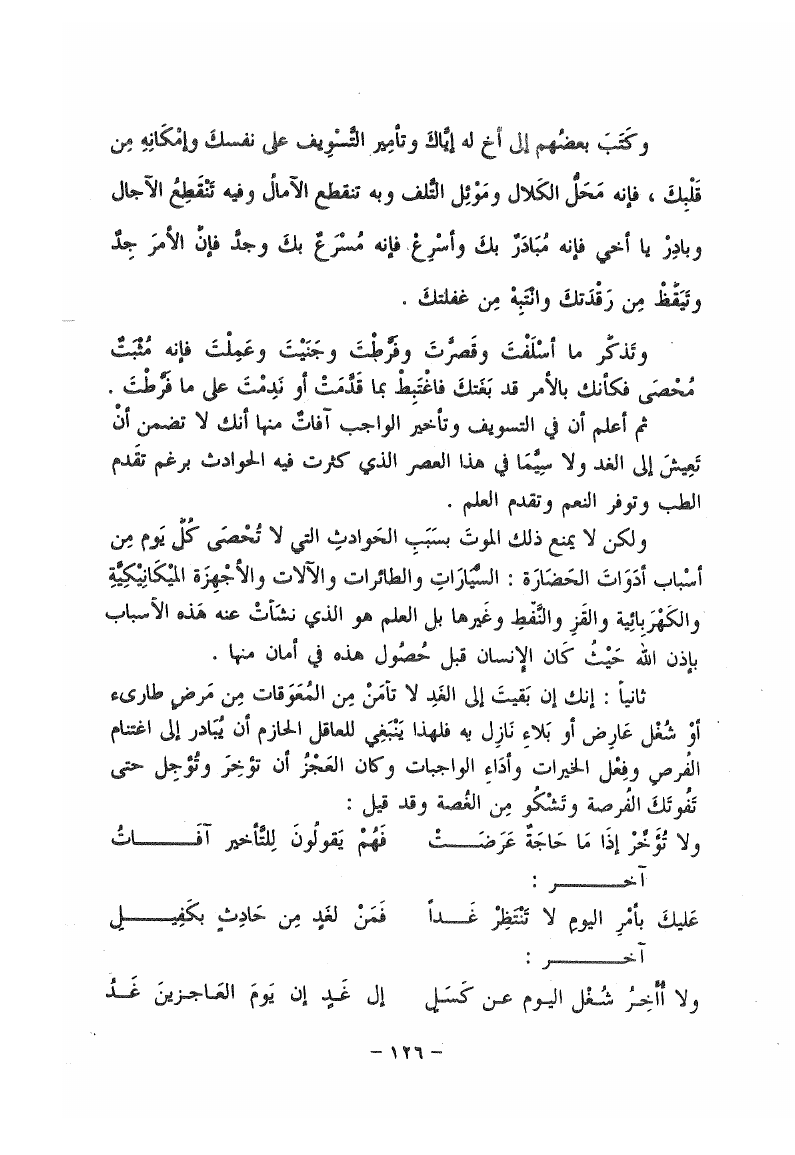 وكَتَبَ بعضُهم إلى أخ له إيَّاكَ وتأمِير التَّسْوِيف على نفسكَ وإمْكَانِهِ مِن
قَلْبِكَ ، فإنه مَحَلُّ الكَلال ومَوْئِل التَّلف وبه تنقطع الآمالُ وفيه تَنْقَطِعُ الآجال
وبادِرْ يا أخي فإنه مُبَادَرٌ بكَ وأسْرِعْ فإنه مُسْرَعٌ بكَ وجدَّ فإنَّ الأمرَ جِدٌّ
وتَيَقَّظْ مِن رَقْدَتكَ وانْتَبِهْ مِن غفلتكَ .
وتَذكَّر ما أسْلَفْتَ وقَصرَّتَ وفَرَّطتَ وجَنَيْتَ وعَمِلْتَ فإنه مُثْبَتٌ
مُحْصَى فكأنك بالأمر قد بَغَتكَ فاغْتَبِطْ بما قَدَّمَتْ أو نَدِمْتَ على ما فَرَّطْتَ .
ثم أعلم أن في التسويف وتأخير الواجب آفاتٌ منها أنك لا تضمن أنْ
تَعِيشَ إلى الغد ولا سِيَّمَا في هذا العصر الذي كثرت فيه الحوادث برغم تقَدم
الطب وتوفر النعم وتقدم العلم .
ولكن لا يمنع ذلك الموتَ بسَبَبِ الحَوادثِ التي لا تُحْصَى كُلَّ يَوم مِن
أسْباب أدَوَات الحَضَارَة : السَّيَّارَاتِ والطائرات والآلات والأجْهِزَة المِيْكَانِيْكِيَّةِ
والكَهْرَبائِية والقَزِ والنَّفْطِ وغَيرها بل العلم هو الذي نشَأتْ عنه هَذه الأسباب
بإذن الله حَيْثُ كان الإنسان قبل حُصُول هذه في أمان منها .
ثانياً : إنك إن بَقيتَ إلى الغَدِ لا تأمَنْ مِن المُعَوَقات مِن مَرضٍ طارىء
أوْ شُغْل عَارِض أو بَلاءِ نَازِل به فلهذا يَنْبَغِي للعاقل الحازم أن يُبَادر إلى اغتنام
الفُرصِ وفِعْل الخيرات وأدَاءِ الواجبات وكان العَجْزُ أن تؤخِرَ وتُؤْجِل حتى
تَفُوتَكَ الفُرصة وتَشْكُو مِن الغُصة وقد قيل :
ولا تُؤَخِّرْ إذَا مَا حَاجَةٌ عَرَضَــتْ فَهُمْ يَقولُونَ لِلتَّأخير آفَـــاتُ
آخـــر :
عَليكَ بأمْرِ اليومِ لا تَنْتَظِرْ غَــداً فَمَنْ لغَدٍ مِن حَادِثٍ بكَفِيـــلِ
آخـــر :
ولا أُأَخِرُ شُغْل اليـوم عـن كَسَلٍ إل غَـدٍ إن يَومَ العَـاجـزينَ غَـدُ
– ١٢٦ –